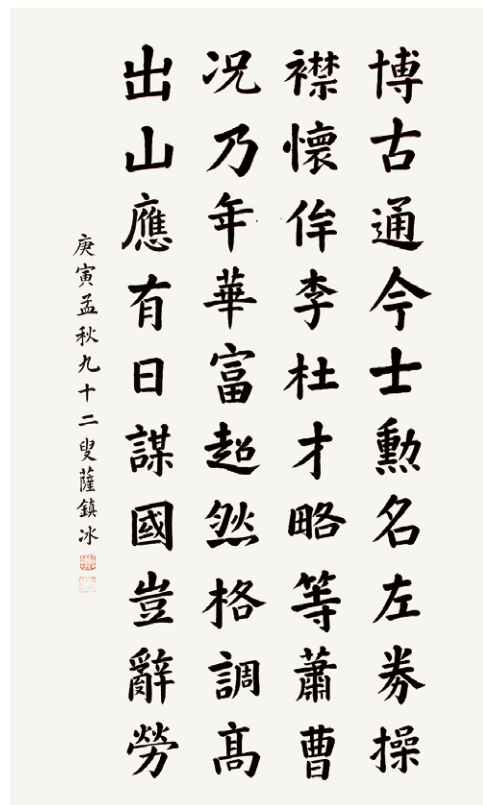 博古通今士勳名左券操
襟懷侔李杜才略等蕭曹
況乃年華富超然格調高
出山應有日謀國豈辭勞
庚寅孟秋九十二叟薩鎮冰